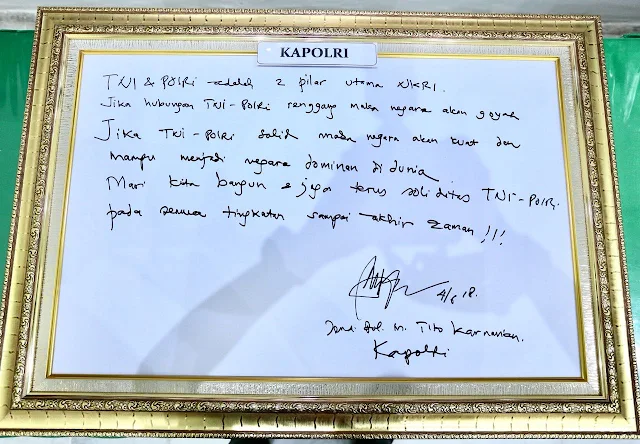 KAPOLRI
TNI & POLRI adalah 2 pilar utama NKRI.
Jika hubungan TNI-POLRI renggang maka negara akan goyah
Jika TNI-POLRI solid maka negara akan kuat dan
mampu menjadi negara dominan di dunia
Mari kita bangun & jaga terus soliditas TNI-POLRI.
pada semua tingkatan sampai akhir zaman !!!
18.
Jend. Pol. M. Tito Karnavian.
Kapolri